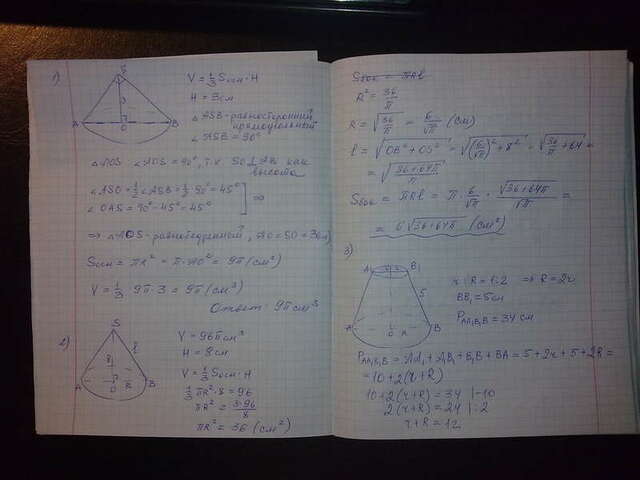 1)
S
3
A
O
B
V = 1/3 Sосн·H
H = 3см
△ASB - равносторонний
прямоугольный
∠ASB = 90°
△AOS ∠AOS = 90°, т.к. SO⊥AB как
высота
∠ASO = 1/2 ∠ASB = 1/2 · 90° = 45°
∠OAS = 90° - 45° = 45°
⇒
⇒ △AOS - равнобедренный, AO = SO = 3см)
Sосн = πR² = π·AO² = 9π (см²)
V = 1/3 · 9π · 3 = 9π (см³)
Ответ: 9π см³
2)
S
l
8
A
O
R
B
V = 96π см³
H = 8см
V = 1/3 Sосн·H
1/3 πR²·8 = 96
πR² = 3·96/8
πR² = 36 (см²)
Sбок = πRl
R² = 36/π
R = √36/π = 6/√π (см)
l = √OB² + OS² = √(6/√π)² + 8² = √36/π + 64 =
= √36+64π/π
Sбок = πRl = π · 6/√π · √36+64π/√π =
= 6√36+64π (см²)
3)
A₁
B₁
5
A
O
R
B
r : R = 1:2 ⇒ R = 2r
BB₁ = 5см
PAA₁B₁B = 34 см
PAA₁B₁B = AA₁ + A₁B₁ + B₁B + BA = 5 + 2r + 5 + 2R =
= 10 + 2(r+R)
10 + 2(r+R) = 34 |-10
2(r+R) = 24 |:2
r+R = 12